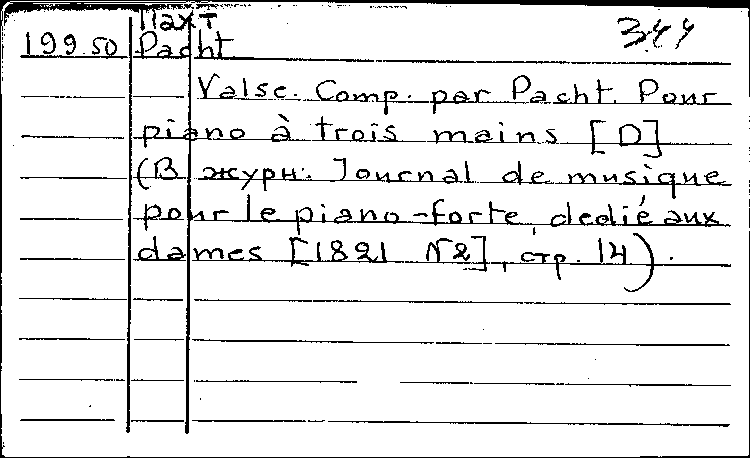 Пахт
199.50 Pacht
Valse. Comp. par Pacht. Pour
piano à trois mains [D]
(В журн: Journal de musique
pour le piano-forte, dedié aux
dames [1821 №2], стр. 14).